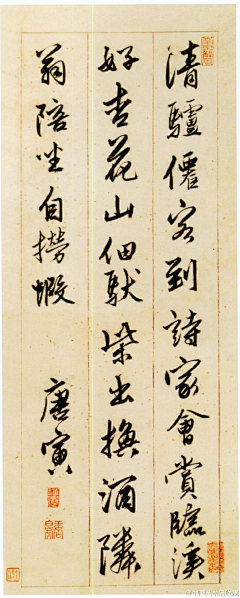 清驢僊客到詩家會賞臨溪
好杏花山佃馱柴出換酒隣
翁陪坐自撈蝦 唐寅